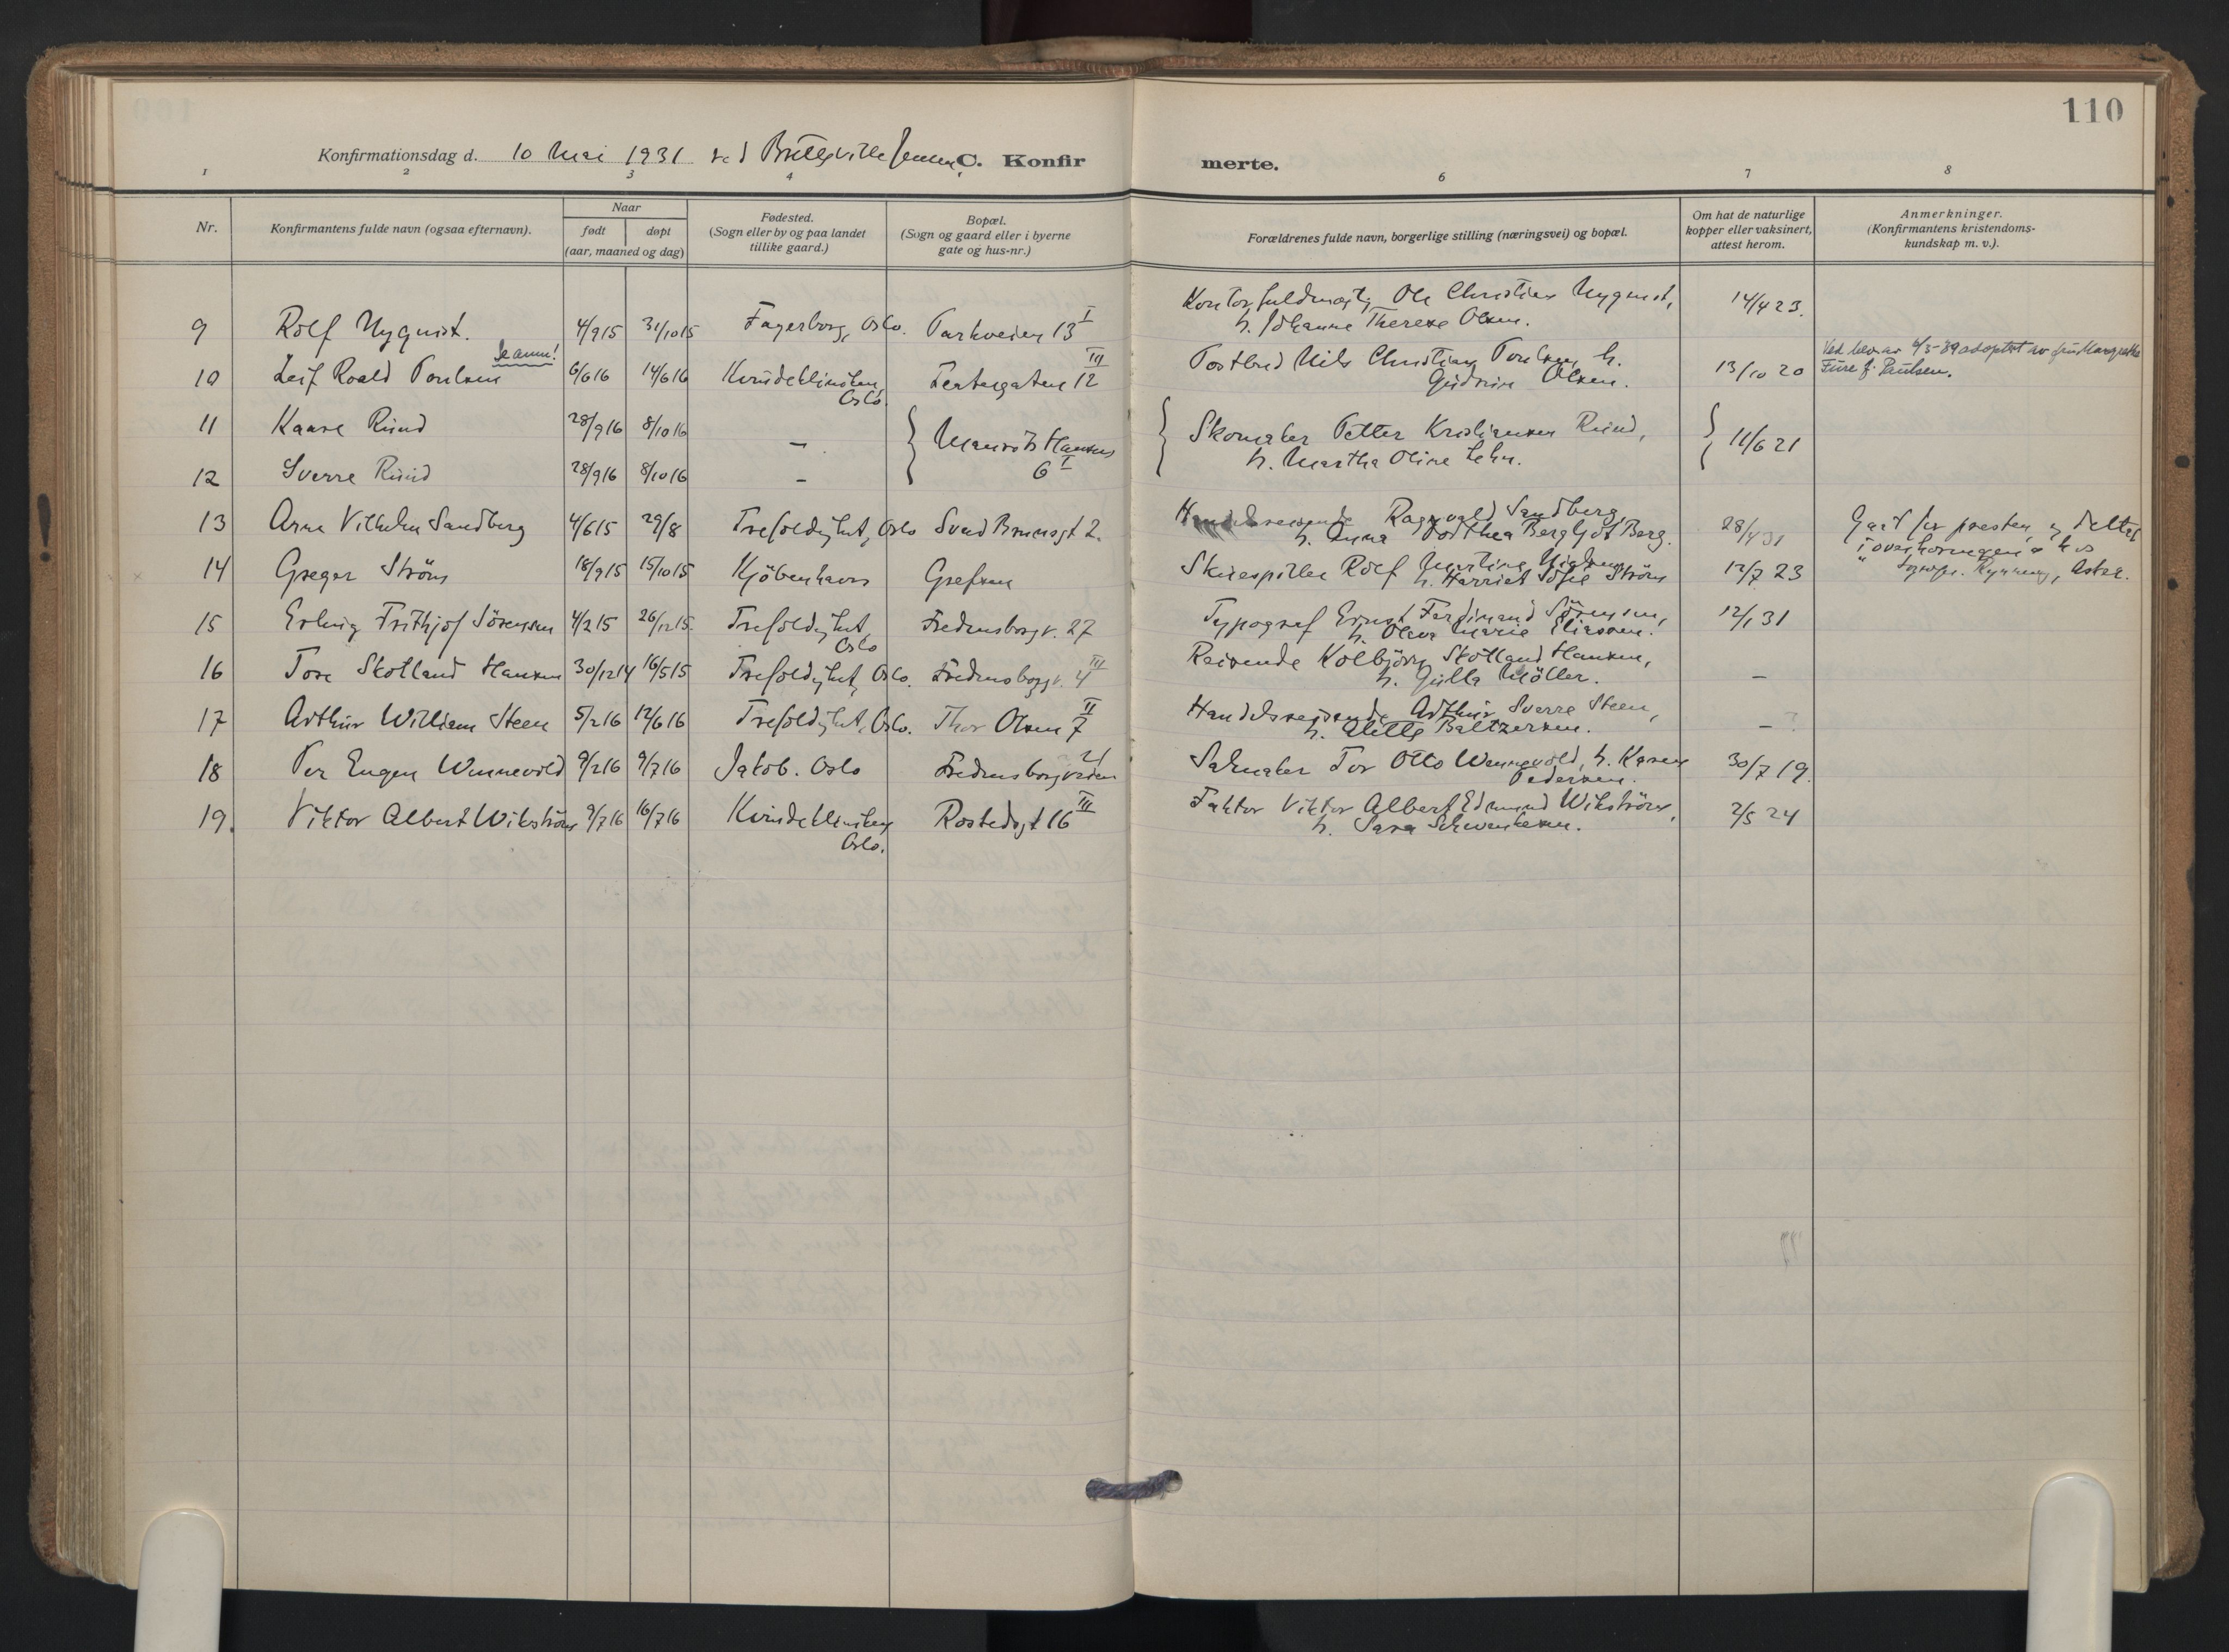 110
Konfirmationsdag d. 10 Mai 1931 ved C. Konfirmerte.
1 2 3 4 6 7 8
Nr.
Konfirmantens fulde navn (ogsaa efternavn).
Naar
født døpt
(aar, maaned og dag)
Fødested.
(Sogn eller by og paa landet
tillike gaard.)
Bopæl.
(Sogn og gaard eller i byerne
gate og hus-nr.)
Forældrenes fulde navn, borgerlige stilling (næringsvei) og bopæl.
Om hat de naturlige
kopper eller vaksinert,
attest herom.
Anmerkninger.
(Konfirmantens kristendoms-
kundskap m. v.).
Kontorfuldmægtig Ole Christian Nyquist, 14/4 23.
9 Rolf Nyquist. 4/9 15 31/10 15 Fagerborg, Oslo. Parkveien 13 I h. Johanne Therese Olsen.
Se anm!
10 Leif Roald Poulsen 6/6 16 14/6 16 Kvindeklinikken, 12 III Postbud Nils Christian Poulsen, h. 13/10 20 Ved bev. av 4/5-39 adoptert av fru Margrethe
Oslo. Gudrun Olsen. Fure f. Paulsen.
11 Kaare Ruud 28/9 16 8/10 16 – Mauritz Hansens Skomaker Petter Kristiansen Ruud, 11/6 21
12 Sverre Ruud 28/9 16 8/10 16 – 6 I h. Martha Oline Lehn.
13 Arne Vilhelm Sandberg 4/6 15 29/8 Trefoldighet, Oslo Svend Brunsgt 2. Handelsreisende Ragnvald Sandberg, 28/4 31 Gaat for presten og deltat
h. Anna Dorthea Bergljot Berg. i overhøringen hos
14 Greger Strøm 18/9 15 15/10 15 Kjöbenhavn Grefsen Skuespiller Rolf 12/7 23 Sogepr. Rynning, Asker.
h. Harriet Sofie Strøm
15 Erling Frithjof Sörensen 4/2 15 26/12 15. Trefoldighet, Fredensborgv. 27 Typograf Ernst Ferdinand Sörensen, 12/1 31
Oslo h. Olava Marie Eliassen.
16 Tore Skotland Hansen 30/12 14 16/5 15 Trefoldighet, Oslo. Fredensborgv. 4 III Reisende Kolbjörn Skotland Hansen, –
h. Gulla Möller.
17 Arthur William Steen 5/2 16 12/6 16 Trefoldighet, Oslo. Thor Olsen 7 II Handelsreisende Arthur Sverre Steen, – ?
h. Baltzersen.
18 Per Eugen Wennevold 9/2 16 9/7 16 Jakob. Oslo Fredensborgveien 21 Salmaker Tor Otto Wennevold, h. Karen 30/7 19.
Pedersen.
19. Viktor Albert Wikström 9/7 16 16/7 16 Kvindeklinikken Rostedsgt 16 III Faktor Viktor Albert Edmund Wikström, 2/5 24
Oslo. h. Sara